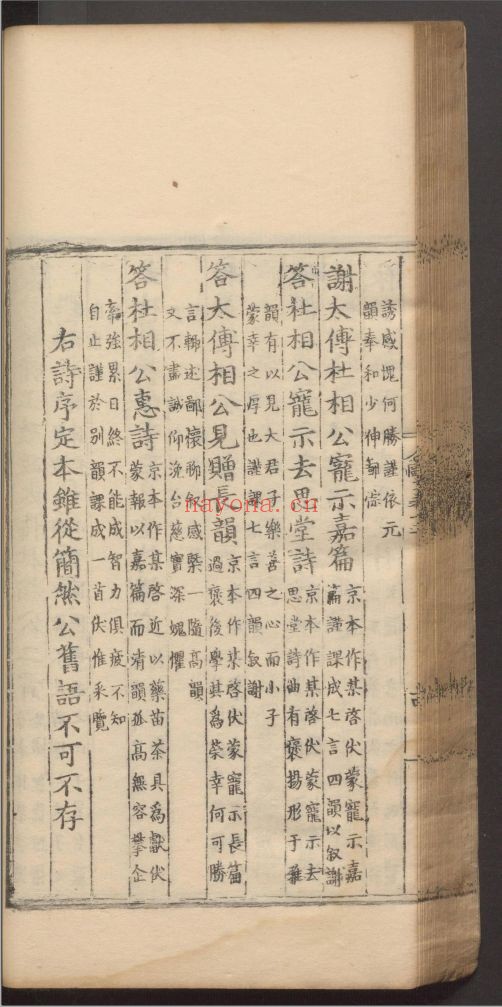 誘感愧何勝謹依元
韻奉和少伸鄙悰
謝太傅杜相公寵示嘉篇
京本作某啓伏蒙寵示嘉
篇謹課成七言四韻以叙謝
答杜相公寵示去思堂詩
京本作某啓伏蒙寵示去
思堂詩曲有褒揚形于雅
韻有以見大君子樂善之心而小子
蒙幸之厚也謹課七言四韻叙謝
答太傅相公見贈長韻
京本作某啓伏蒙寵示長篇
過褒後學其為榮幸何可勝
言輙述鄙懷聊叙感槩一隨高韻
文不盡誠仰浼台慈實深愧懼
答杜相公惠詩
京本作某啓近以藥苗茶具為獻伏
蒙報以嘉篇而清韻孤高無容攀企
牽強累日終不能成智力俱疲不知
自止謹於別韻課成一首伏惟采覽
右詩序定本雖從簡然公舊語不可不存
nayona.cn